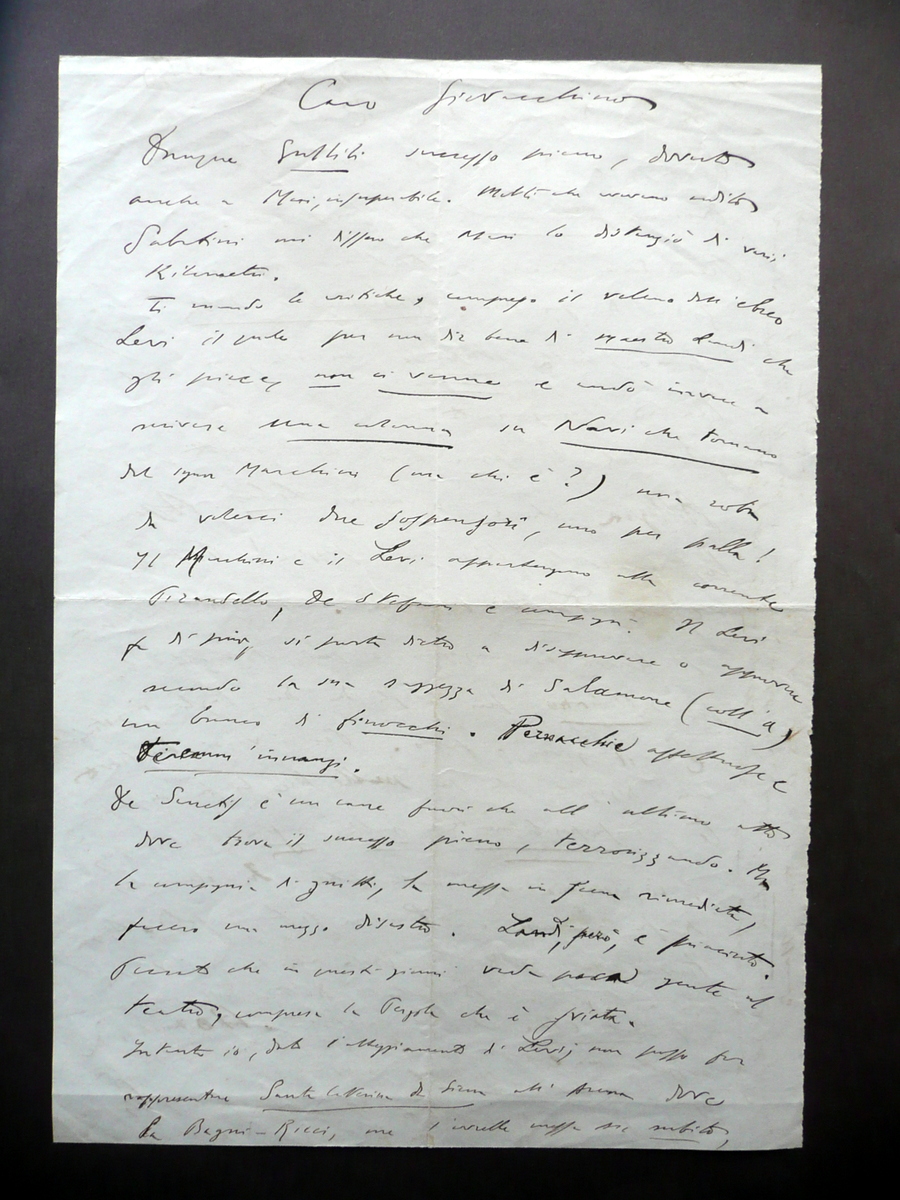 Caro Giovacchino
Dunque successo pieno, dovuto
anche a Masi, insuperabile. Molti che avevano udito
Sabatini mi dissero che Masi lo distanziò di vari
Kilometri.
Ti mando le critiche, compreso il veleno dell'ebreo
Levi il quale per non dir bene di maestro Landi che
gli piace, non ci venne e andò invece a
scrivere una colonna su Navi che tornano
del signor Marchini (ma chi è?) una roba
da volerci due sospensori, uno per palla!
Il Marchini e il Levi appartengono alla corrente
Pirandello, De Stefani e compagni. Il Levi
fa di più, si porta dietro a disapprovare o approvare
secondo la sua saggezza di Salamone (coll'a)
un branco di finocchi. Pernacchie affettuose e
tiremm' innanzi.
De Sanctis è un cane fuori che all'ultimo atto
dove trova il successo pieno, terrorizzando. Ma
la compagnia di guitti, la messa in scena rimediata,
fecero un mezzo disastro. Landi, però, è piaciuto.
Peccato che in questi giorni vada poca gente al
teatro, compresa la Pergola che è sfiata.
Intanto io, dato l'atteggiamento di Levi, non posso far
rappresentare Santa Caterina da Siena all' dove
la Bagni-Ricci, me l'avrebbe messa su subito,